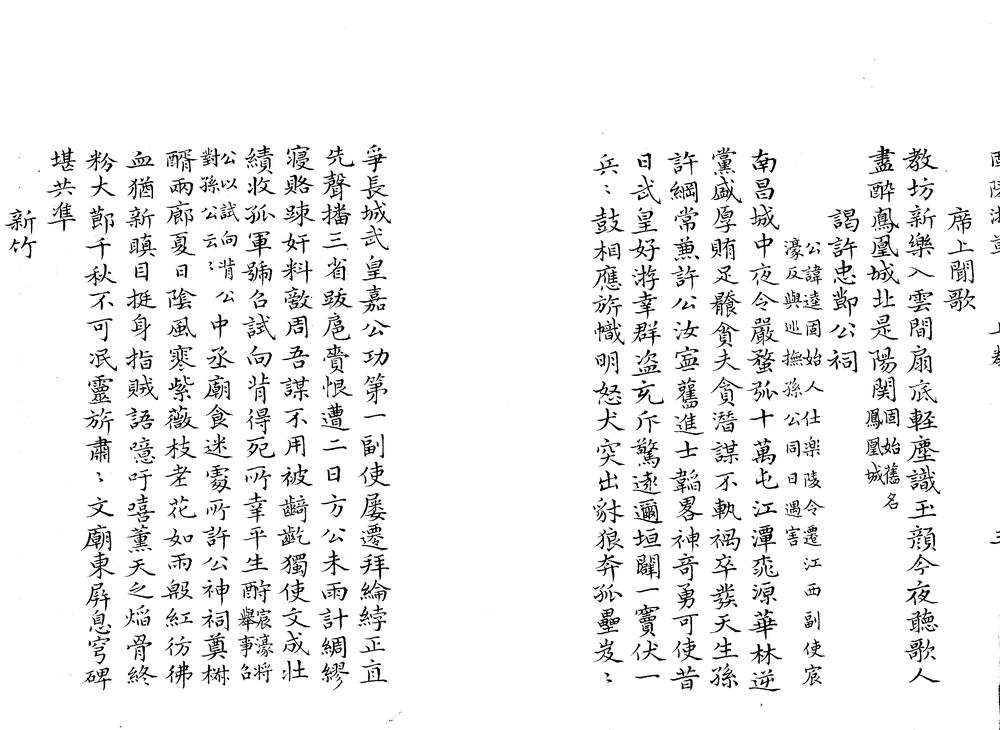 席上聞歌
教坊新樂入雲間扇底輕塵識玉顏今夜聽歌人
盡醉鳳凰城北是陽関固始舊名鳳凰城
謁許忠節公祠
公諱逵固始人仕樂陵令遷江西副使宸
濠反與巡撫孫公同日遇害
南昌城中夜令嚴蝥弧十萬屯江潭桃源華林逆
黨盛厚賄足饜貪夫貪潛謀不軌禍卒發天生孫
許綱常兼許公汝寧舊進士韜畧神奇勇可使昔
日武皇好游幸群盗充斥驚逺邇垣闢一竇伏一
兵〻鼓相應旂幟明怒犬突出豺狼奔孤壘岌〻
爭長城武皇嘉公功第一副使屡遷拜綸綍正直
先聲播三省跋扈賫恨遭二日方公未雨計綢繆
寢賂踈奸料敵周吾謀不用被齮齕獨使文成壯
績收孤軍號召試向背得死所幸平生酧宸濠將舉事召
公以試向背公對孫公云〻中丞廟食迷䖏所許公神祠奠椒
醑兩廊夏日陰風寒紫薇枝老花如雨殷紅彷彿
血猶新瞋目挺身指賊語噫吁嘻薰天之焰骨終
粉大節千秋不可泯靈旂肅〻文廟東屏息穹碑
堪共凖
新竹